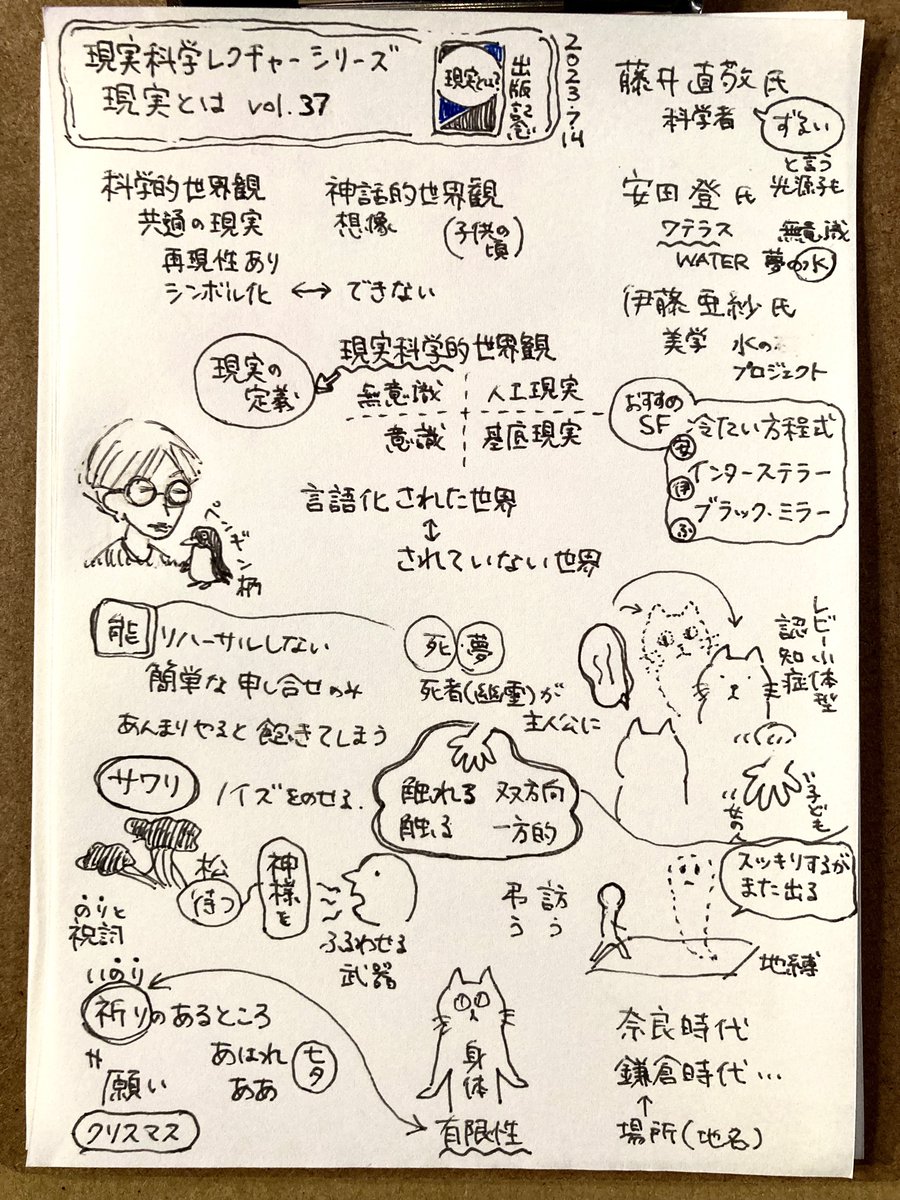 現実科学レクチャーシリーズ
現実とは vol.37
現実とは?
出版記念
2023.7.14
藤井直敬氏
科学者
ずるい
と言う
光源氏も
安田登氏
ワテラス
WATER
無意識
夢の水
伊藤亜紗氏
美学
水の
プロジェクト
科学的世界観
共通の現実
再現性あり
シンボル化 ↔ できない
神話的世界観
想像
(子供の頃)
現実科学的世界観
現実の定義
無意識 人工現実
意識 基底現実
おすすめSF
安 冷たい方程式
伊 インターステラー
ふ ブラック・ミラー
言語化された世界
↕
されていない世界
ペンギン柄
能 リハーサルしない
簡単な申し合せのみ
あんまりやると飽きてしまう
死 夢
死者(幽霊)が
主人公に
レビー小体型
認知症
サワリ ノイズをのせる.
触れる 双方向
触る 一方的
子ども
女の人
松
待つ
神様を
ふるわせる
武器
のりと
祝詞
弔う
訪う
スッキリするが
また出る
地縛
いのり
祈りのあるところ
願い
あはれ
ああ
七夕
クリスマス
身体
有限性
奈良時代
鎌倉時代…
↑
場所(地名)